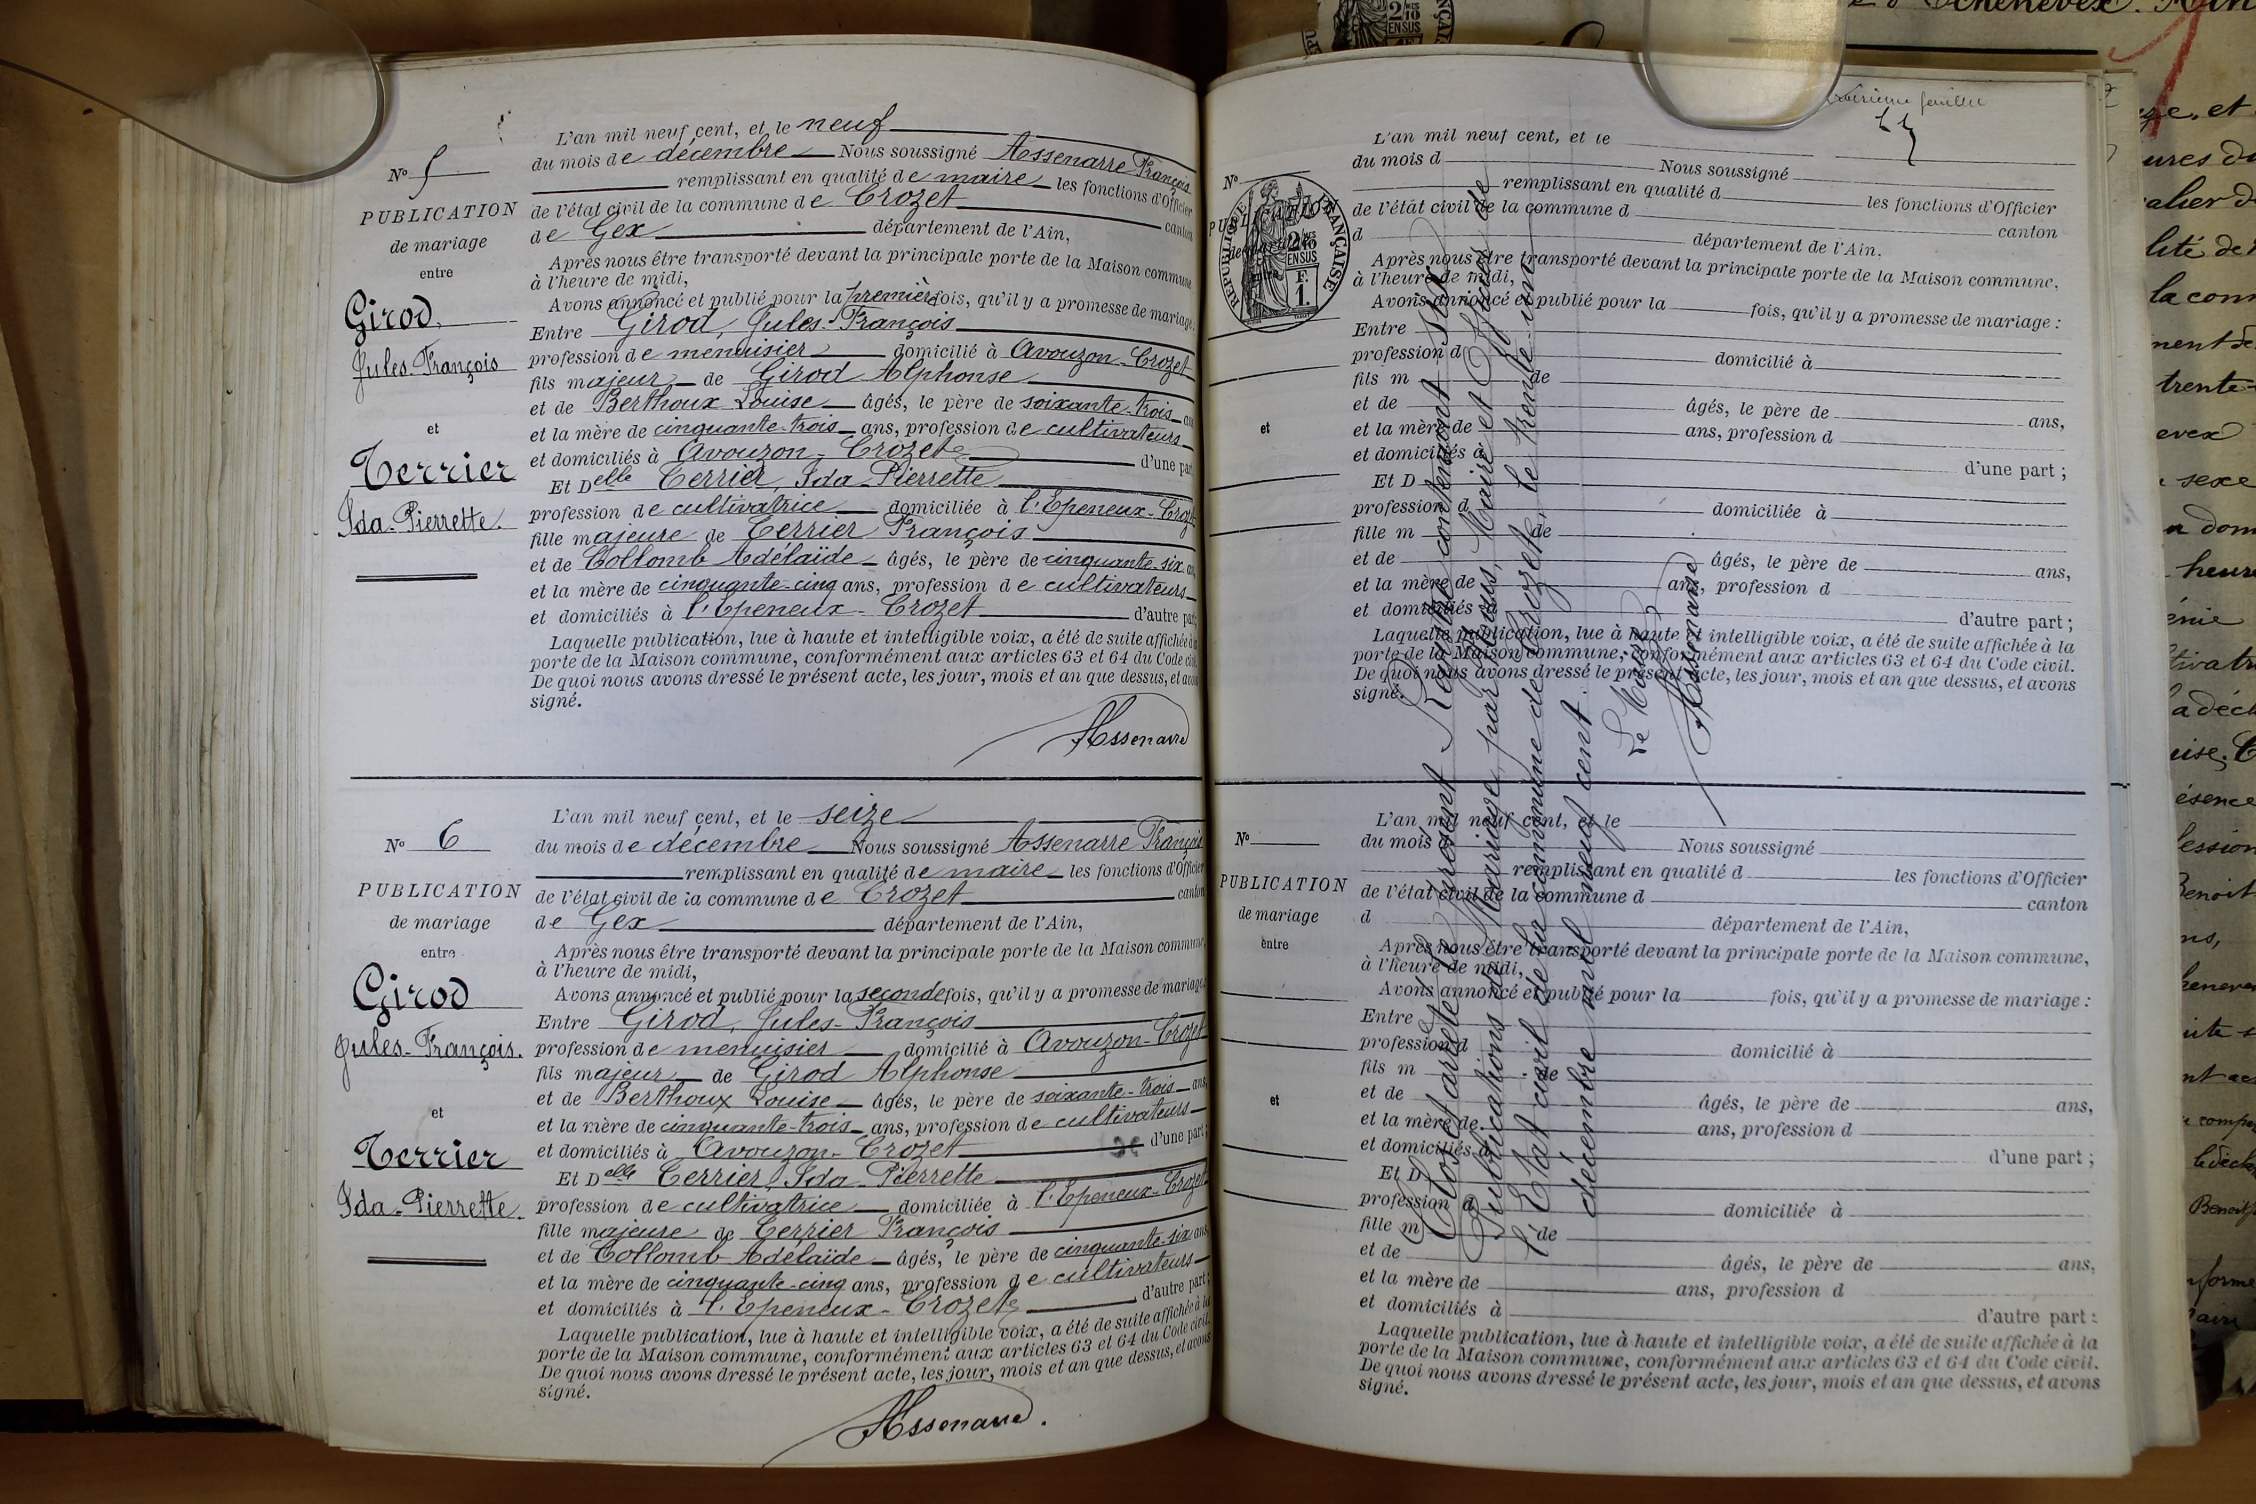 N° 5
PUBLICATION
de mariage
entre
Girod,
Jules-François
et
Terrier
Ida-Pierrette.
L'an mil neuf cent, et le neuf
du mois de décembre Nous soussigné Assenarre François
remplissant en qualité de maire les fonctions d'Officier
de l'état civil de la commune de Crozet canton
de Gex département de l'Ain,
Après nous être transporté devant la principale porte de la Maison commune
à l'heure de midi,
Avons annoncé et publié pour la première fois, qu'il y a promesse de mariage.
Entre Girod, Jules-François
profession de menuisier domicilié à Avouzon-Crozet
fils majeur de Girod Alphonse
et de Berthoux Louise âgés, le père de soixante-trois ans
et la mère de cinquante-trois ans, profession de cultivateurs
et domiciliés à Avouzon-Crozet d'une part
Et Delle Terrier, Ida-Pierrette
profession de cultivatrice domiciliée à l'Epeneux-Crozet
fille majeure de Terrier François
et de Collomb Adélaïde âgés, le père de cinquante-six an
et la mère de cinquante-cinq ans, profession de cultivateurs
et domiciliés à l'Epeneux-Crozet d'autre part;
Laquelle publication, lue à haute et intelligible voix, a été de suite affichée à la
porte de la Maison commune, conformément aux articles 63 et 64 du Code civil.
De quoi nous avons dressé le présent acte, les jour, mois et an que dessus, et avons
signé.
Assenarre
N° 6
PUBLICATION
de mariage
entre
Girod
Jules-François.
et
Terrier
Ida-Pierrette.
L'an mil neuf cent, et le seize
du mois de décembre Nous soussigné Assenarre François
remplissant en qualité de maire les fonctions d'Officier
de l'état civil de la commune de Crozet canton
de Gex département de l'Ain,
Après nous être transporté devant la principale porte de la Maison commune,
à l'heure de midi,
Avons annoncé et publié pour la seconde fois, qu'il y a promesse de mariage:
Entre Girod, Jules-François
profession de menuisier domicilié à Avouzon-Crozet
fils majeur de Girod Alphonse
et de Berthoux Louise âgés, le père de soixante-trois ans,
et la mère de cinquante-trois ans, profession de cultivateurs
et domiciliés à Avouzon-Crozet d'une part;
Et Delle Terrier, Ida-Pierrette
profession de cultivatrice domiciliée à l'Epeneux-Crozet
fille majeure de Terrier François
et de Collomb Adélaïde âgés, le père de cinquante-six ans
et la mère de cinquante-cinq ans, profession de cultivateurs
et domiciliés à l'Epeneux-Crozet d'autre part;
Laquelle publication, lue à haute et intelligible voix, a été de suite affichée à la
porte de la Maison commune, conformément aux articles 63 et 64 du Code civil.
De quoi nous avons dressé le présent acte, les jour, mois et an que dessus, et avons
signé.
Assenarre.
feuillet
N°
PUBLICATION
REPUBLIQUE FRANÇAISE
2/10
EN SUS
F.
1.
et
L'an mil neuf cent, et le
du mois d Nous soussigné
remplissant en qualité d les fonctions d'Officier
de l'état civil de la commune d canton
d département de l'Ain.
Après nous être transporté devant la principale porte de la Maison commune,
à l'heure de midi,
Avons annoncé et publié pour la fois, qu'il y a promesse de mariage:
Entre
profession d domicilié à
fils m de
et de âgés, le père de ans,
et la mère de ans, profession d
et domiciliés à d'une part;
Et D
profession d domiciliée à
fille m de
et de âgés, le père de ans,
et la mère de ans, profession d
et domiciliés à d'autre part;
Laquelle publication, lue à haute et intelligible voix, a été de suite affichée à la
porte de la Maison commune, conformément aux articles 63 et 64 du Code civil.
De quoi nous avons dressé le présent acte, les jour, mois et an que dessus, et avons
signé.
N°
PUBLICATION
de mariage
entre
et
L'an mil neuf cent, et le
du mois d Nous soussigné
remplissant en qualité d les fonctions d'Officier
de l'état civil de la commune d canton
d département de l'Ain,
Après nous être transporté devant la principale porte de la Maison commune,
à l'heure de midi,
Avons annoncé et publié pour la fois, qu'il y a promesse de mariage:
Entre
profession d domicilié à
fils m de
et de âgés, le père de ans,
et la mère de ans, profession d
et domiciliés à d'une part;
Et D
profession d domiciliée à
fille m de
et de âgés, le père de ans,
et la mère de ans, profession d
et domiciliés à d'autre part:
Laquelle publication, lue à haute et intelligible voix, a été de suite affichée à la
porte de la Maison commune, conformément aux articles 63 et 64 du Code civil.
De quoi nous avons dressé le présent acte, les jour, mois et an que dessus, et avons
signé.
Clos et arrêté le présent Registre contenant six
Publications de Mariage, par Nous, Maire et Officier de
l'Etat civil de la commune de Crozet, le trente-un
décembre mil neuf cent.
Le Maire
Assenarre